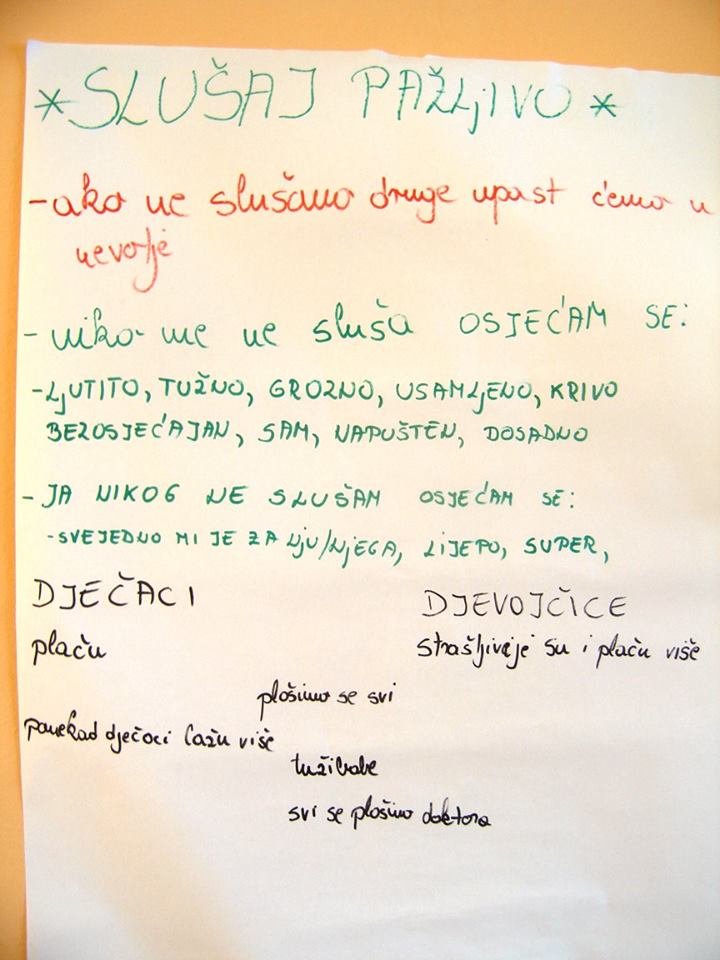 *SLUŠAJ PAŽLjIVO*
-ako ne slušamo druge upast ćemo u
nevolje
-niko me ne sluša OSJEĆAM SE:
-LjUTITO, TUŽNO, GROZNO, USAMLjENO, KRIVO
BEZOSJEĆAJAN, SAM, NAPUŠTEN, DOSADNO
-JA NIKOG NE SLUŠAM OSJEĆAM SE:
-SVEJEDNO MI JE ZA NjU/NjEGA, LIJEPO, SUPER,
DJEČACI DJEVOJČICE
plaču strašljiveje su i plaču više
plošimo se svi
ponekad dječaci lažu više
tužibabe
svi se plošimo doktora